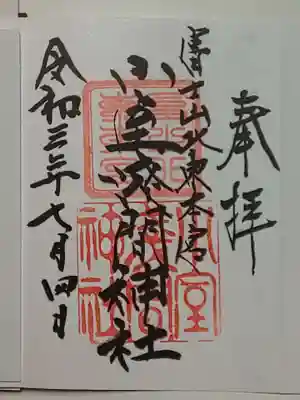 奉拝
富士山北東本宮
小室浅間神社
令和三年七月四日